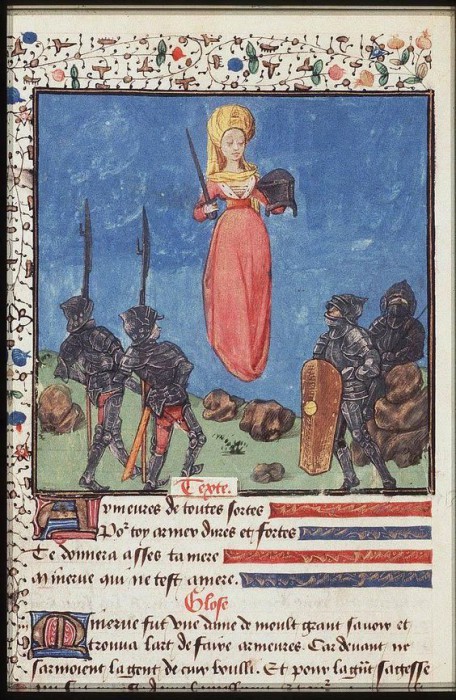 Texte.
Armeures de toutes sortes
Por toy armer dures et fortes
Te donnera asses ta mere
Minerue qui ne test amere.
Glose
Minerue fut vne dame de moult grant sauoir et
trouua lart de faire armeures. Car deuant ne
sarmoient la gent de cuir boulli. Et pour la grāt sagesse